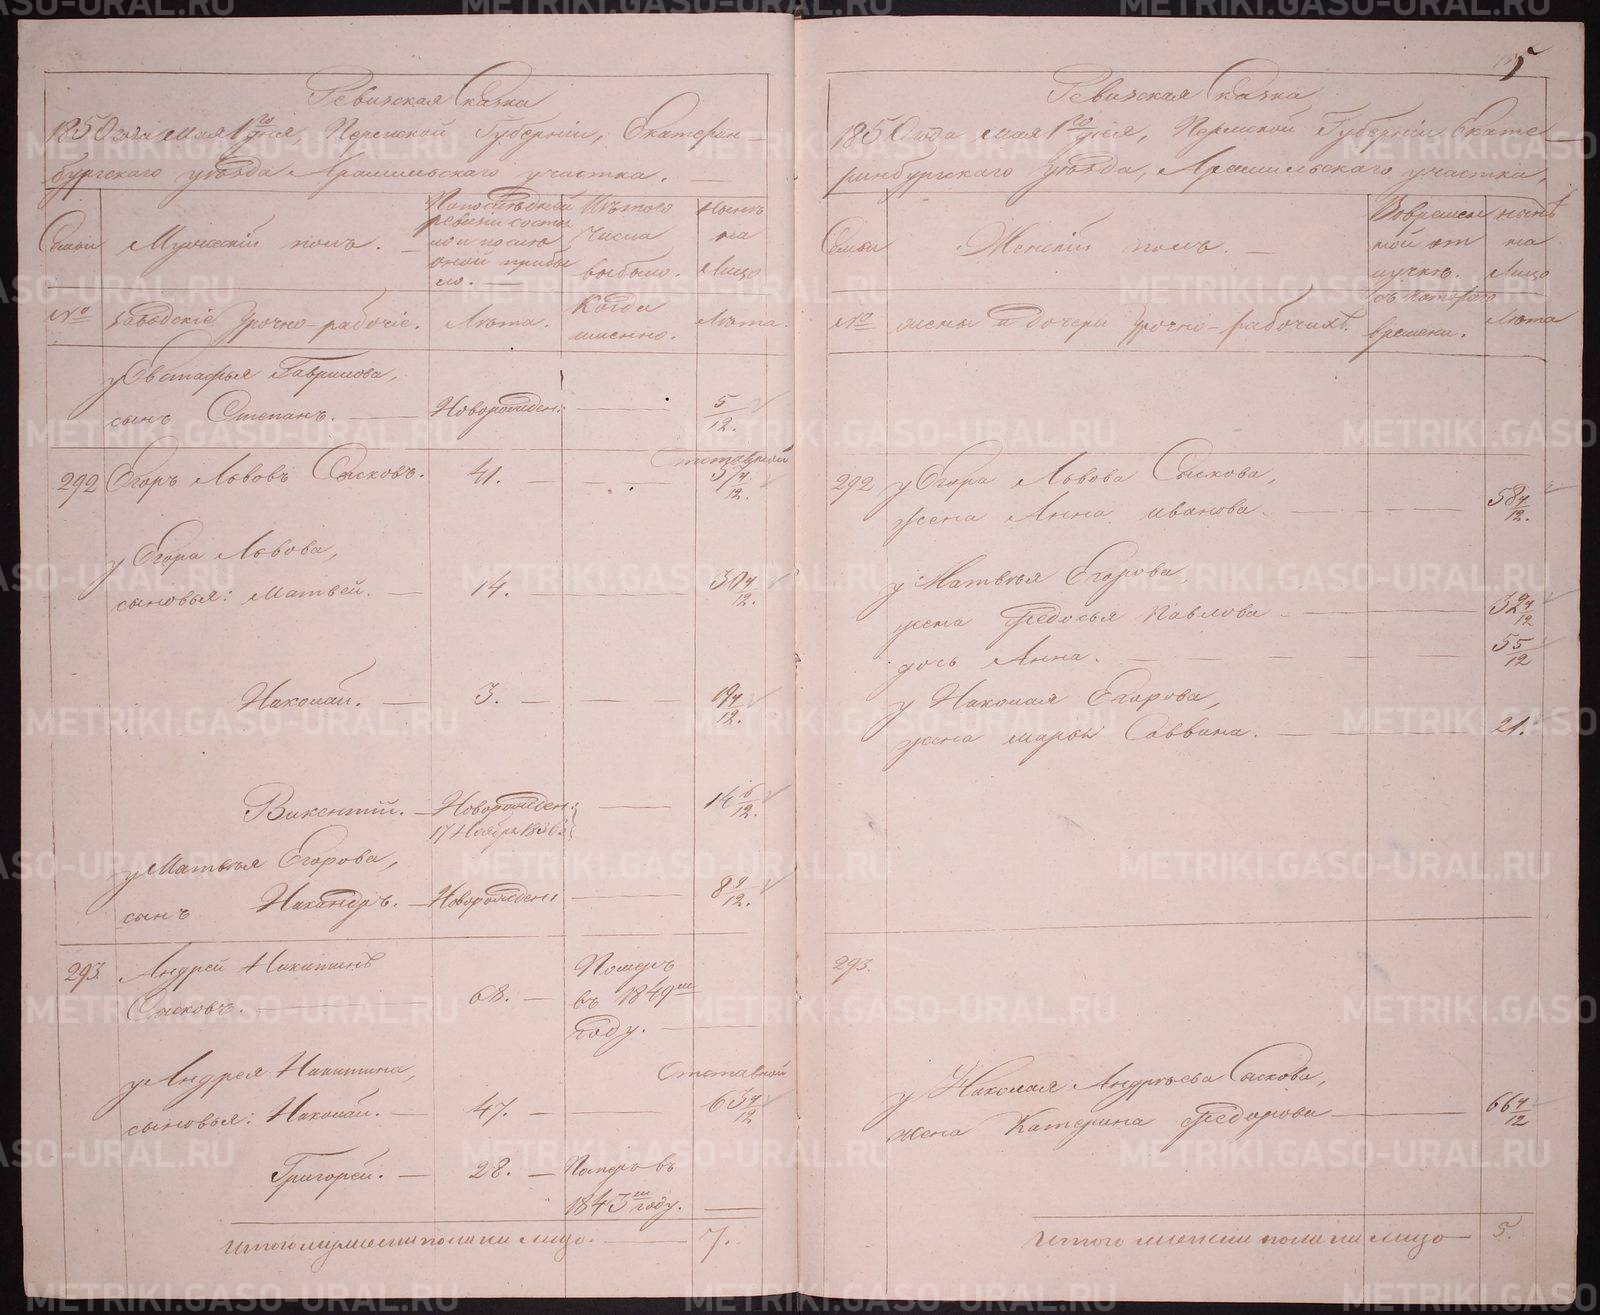 5
Ревизская Сказка
1850 года Мая 1го дня, Пермской Губернии, Екатерин-
бургскаго уѣзда Арамильскаго участка.
Семьи
Мужескій полъ.
По последней ревизіи состояло и после оной прибыло.
Изъ того числа выбыло.
Нынѣ на лицо
№
Заводскіе Урочно-рабочіе.
Лѣта.
Когда именно.
Лѣта.
у Евстафья Гаврилова,
сынъ Степанъ. Новорожден: 5/12.
Отставной
292 Егоръ Львовъ Сысковъ. 41. 57 4/12.
у Егора Львова,
сыновья: Матвей. 14. 30 4/12.
Николай. 3. 19 4/12.
Викентій. Новорожден: 14 6/12.
17 Ноября 1836
у Матвѣя Егорова,
сынъ Никандръ. Новорожден: 8 4/12.
293. Андрей Никитинъ
Сысковъ. 68. Померъ въ 1849м году.
у Андрея Никитина, Отставной
сыновья: Николай. 47. 63 4/12
Григорей. 28. Померъ въ
1843м году.
Итого мужески пола на лицо. 7.
Ревизская Сказка
1850 года мая 1го дня, Пермской Губерніи Екате-
ринбургскаго Уѣзда, Арамильскаго участка,
Семьи
Женскій полъ.
Во временной отлучкѣ.
Нынѣ на лицо
№
жены и дочери Урочно-рабочихъ.
съ котораго времени.
Лѣта
292 у Егора Львова Сыскова,
жена Анна Иванова. 58 4/12.
у Матвѣя Егорова,
жена Федосья Павлова 32 4/12
дочь Анна. 5 5/12
у Николая Егорова,
жена Марфа Саввина. 21.
293.
у Николая Андрѣева Сыскова,
жена Катерина Федорова 66 4/12
Итого женски пола на лицо 5.
METRIKI.GASO-URAL.RU